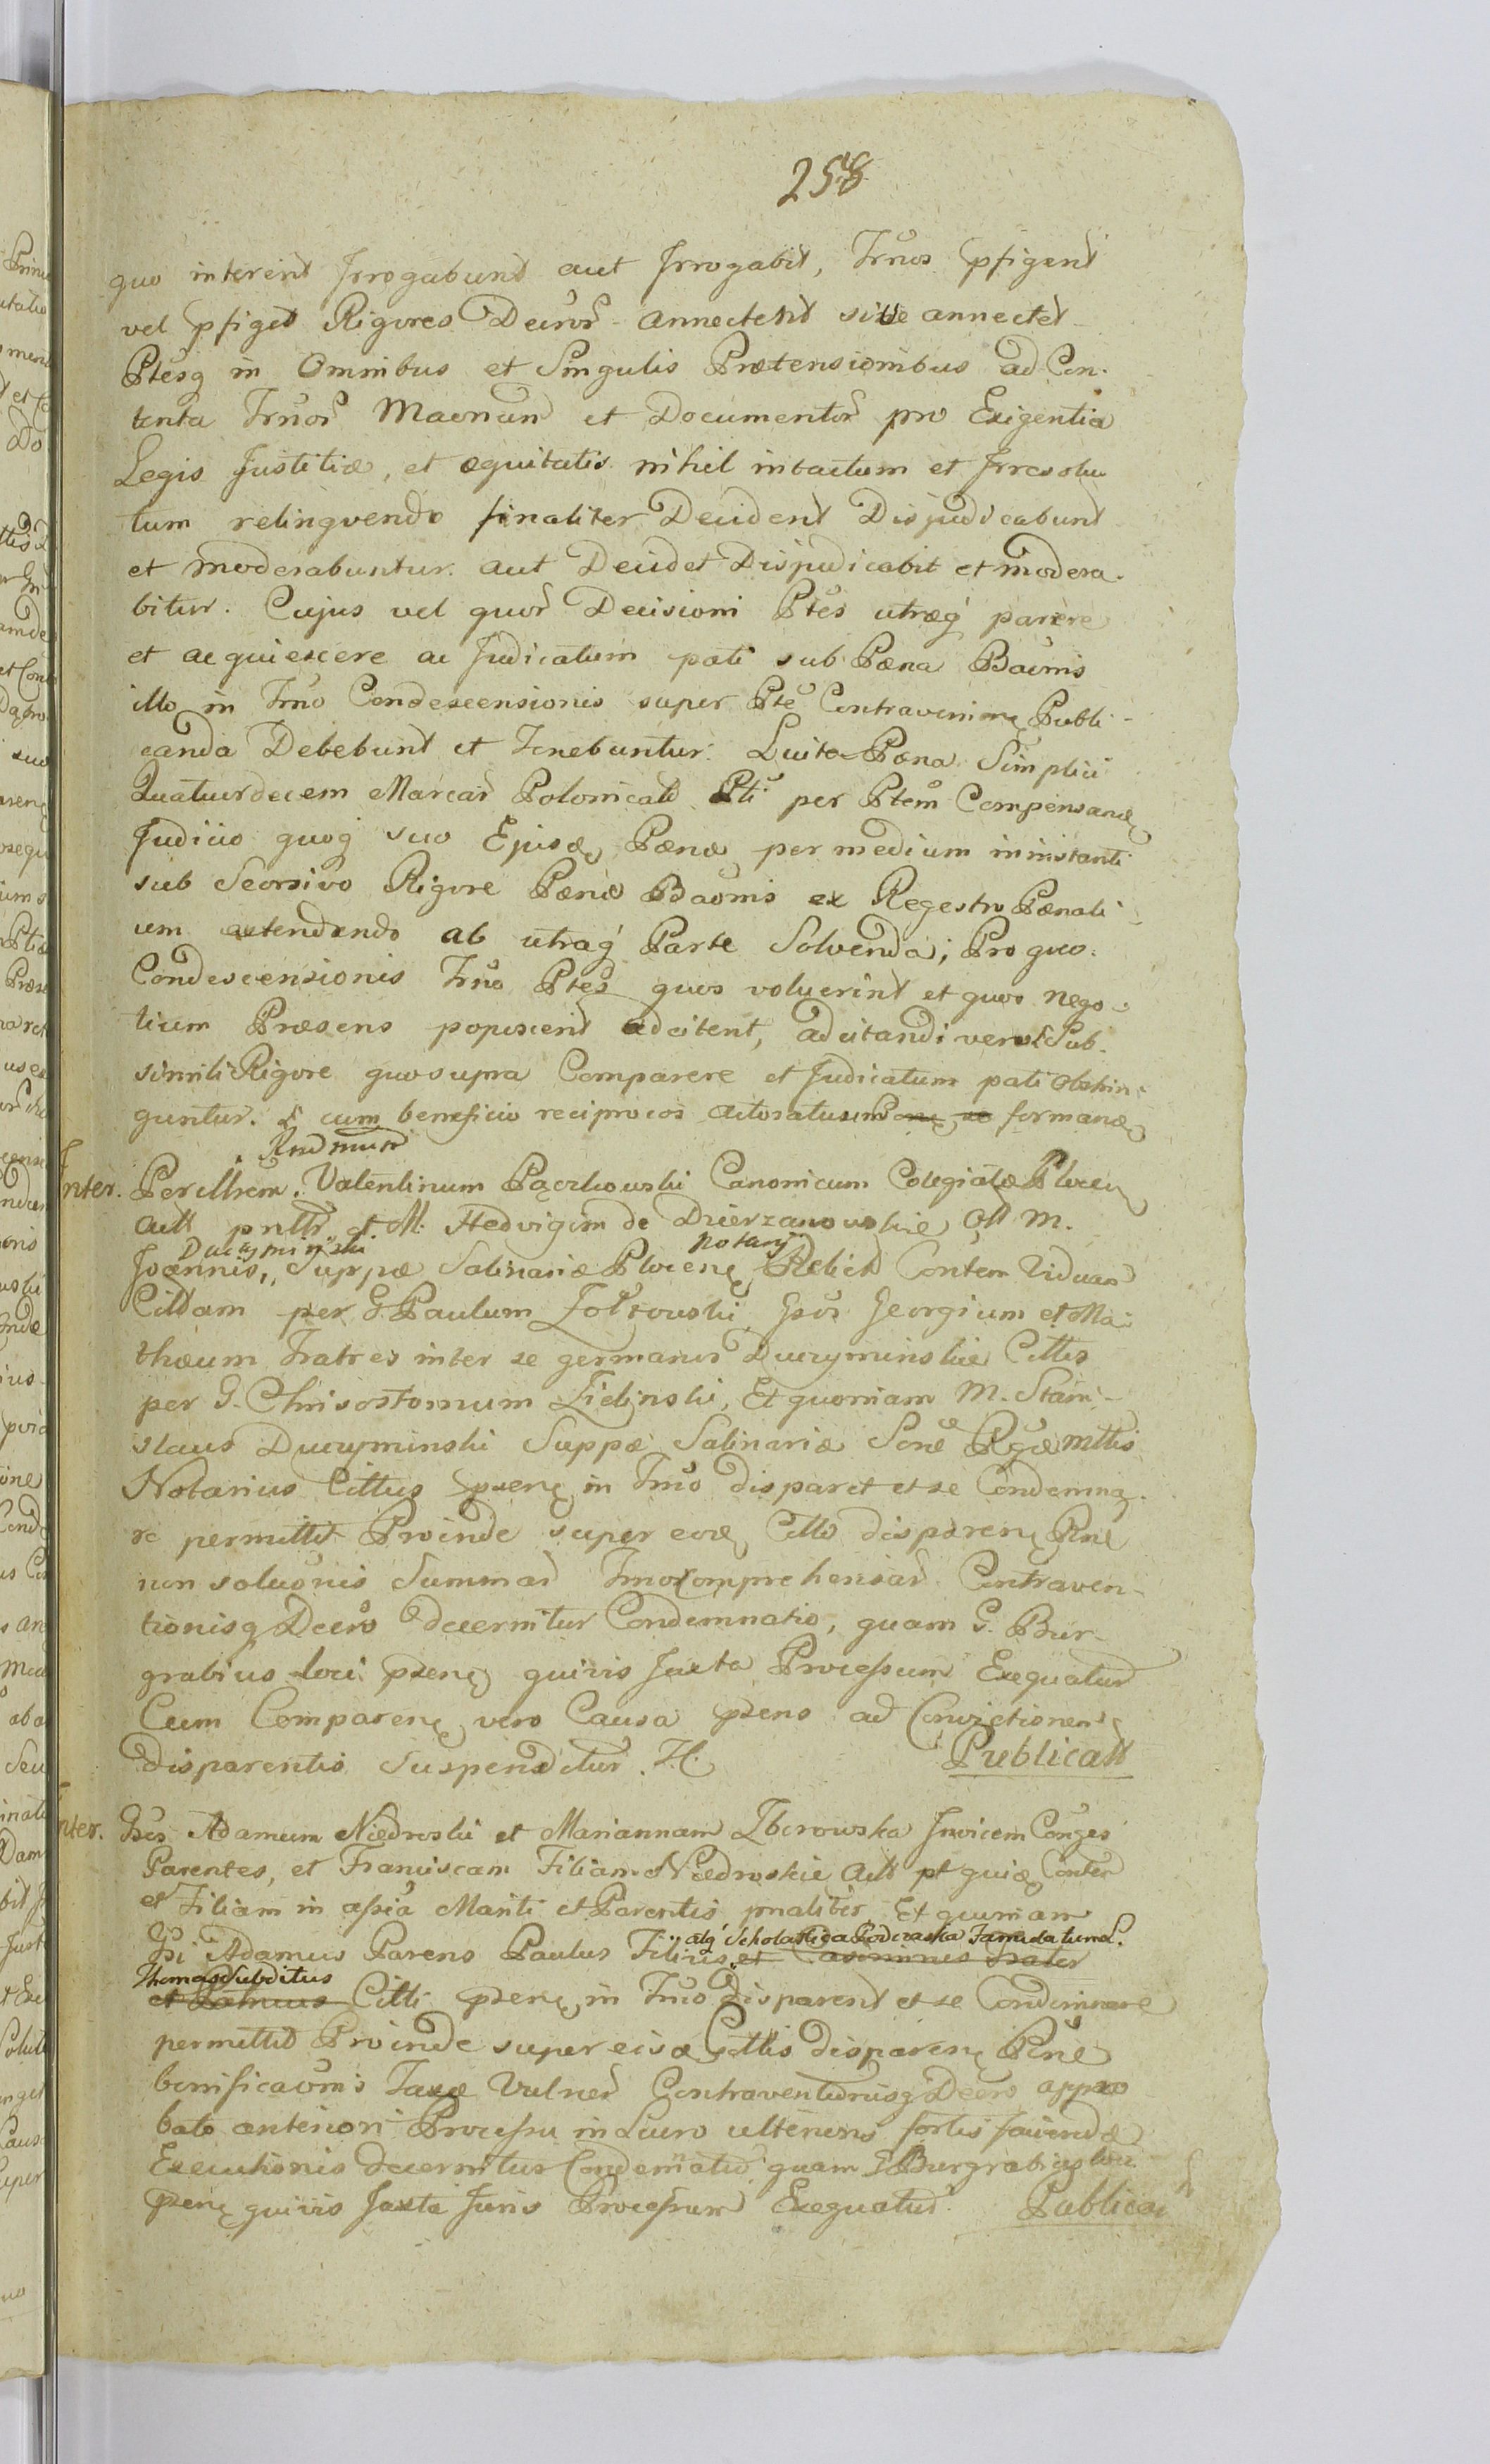 258
quo interent Irrogabunt aut Irrogabit, Trnos pfigent
vel pfiget Rigores Decror annectent sive annectet
Ptesq in Omnibus et Singulis Prætensionibus ad Con-
tenta Trnor Maonun et Documentor pro Exigentia
Legis Justitiæ, et æquitatis nihil intactum et Irresolu
tum relinqvendo finaliter Decident Disjudicabunt
et moderabuntur. aut Decidet Disjudicabit et modera-
bitur. Cujus vel quor Decisioni Ptes utræq parere
et acquiescere ac Judicatum pati sub Pæna Baonis
illo in Trno Condescensionis super Pte Contravenien Publi-
canda Debebunt et Tenebuntur. Luita Pæna Simplici
Quatuordecem Marcar Polonicali Pti per Ptem Compensan
Judicio quoq suo Ejusd Pænæ per medium ininstanti
sub Seorsivo Rigore Pænæ Baonis ex Regestro Pænali
um attendendo ab utraq Parte Solvenda; Pro quo
Condescensionis Trno Ptes quos voluerint et quos nego-
tium Præsens poposcerit adcitent, adcitandi vero Sub
simili Rigore quo supra Comparere et Judicatum pati obstrin-
guntur. & cum beneficio reciprocos actoratus forman
Rndmum
Inter. Perillrem. Valentinum Pączkowski Canonicum Colegiatæ Plocen
Act pnltr et M. Hedvigim de Dzierzanowskie Olt M.
Duczyminski notarÿ
Joannis, Suppæ Salinariæ Plocen Relict Conten Viduam
Cittam per G. Paulum Zołtowski Gsos Georgium et Ma-
thæum Fratres inter se germanos Duczyminskie Cittos
per G. Chrisostomum Zielinski, Et quoniam M. Stani-
slaus Duczyminski Suppæ Salinariæ Scne Rgæ Mttis
Notarius Cittus psen in Trno disparet et se Condemna
re permittit Proinde super eod Citto disparen Rne
non soluonis Summar Trno Comprehensar Contraven-
tionisq Decro decernitur Condemnatio, quam G. Bur-
grabius loci psen quivis Juxta Processum Exequatur
Cum Comparen vero Causa psens ad Convictionem
disparentis Suspenditur. H. Publicatt
Inter. Gsos Adamum Niedroski et Mariannam Zborowska Invicem Conges
Parentes, et Franciscam Filiam Niedroskie Act pt quid Conten
et Filiam in assia Mariti et Parentis pnaliter Et quoniam
atq Scholastica Famulatum
Gsi Adamus Parens Paulus Filius et Casimirus Frater
Thomas Subditus
et Citti psen in Trno disparent et se Condemnare
permittit Proinde super eisd Cittis disparen Rne
bonificaonis Taxæ Vulner Contraventionisq Decro appro
bato anteriori Processu in Lucro ulterioris fortis faciendæ
Executionis decernitur Condemnatio quam G Burgrabius loci
psen quivis Juxta Juris Processum Exequatur. Publicat